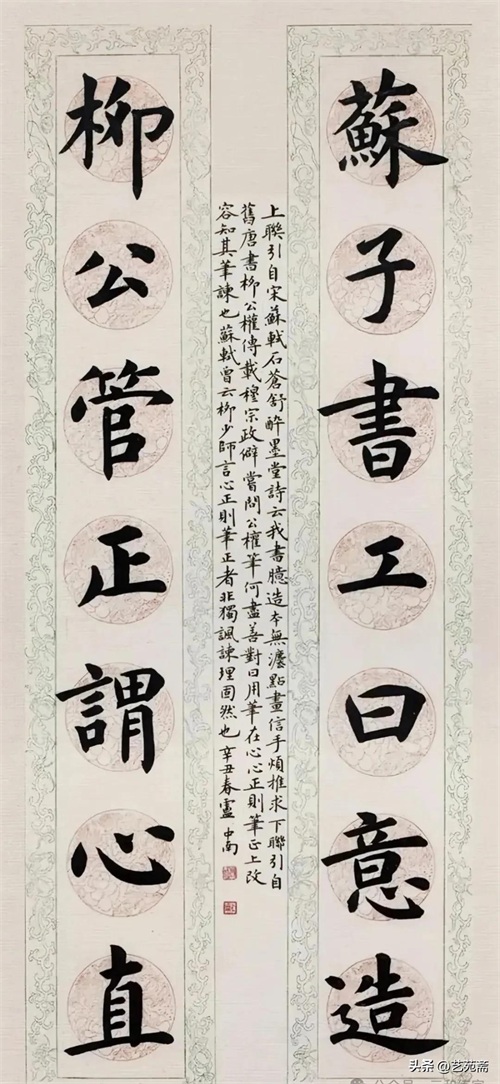 蘇子書工曰意造
上聯引自宋蘇軾石蒼舒醉墨堂詩云我書臆造本無灋點畫信手煩推求下聯引自
舊唐書柳公權傳載穆宗政僻嘗問公權筆何盡善對曰用筆在心心正則筆正上改
容知其筆諫也蘇軾曾云柳少師言心正則筆正者非獨諷諫理固然也 辛丑春盧中南
柳公管正謂心直
头条 @艺苑斋